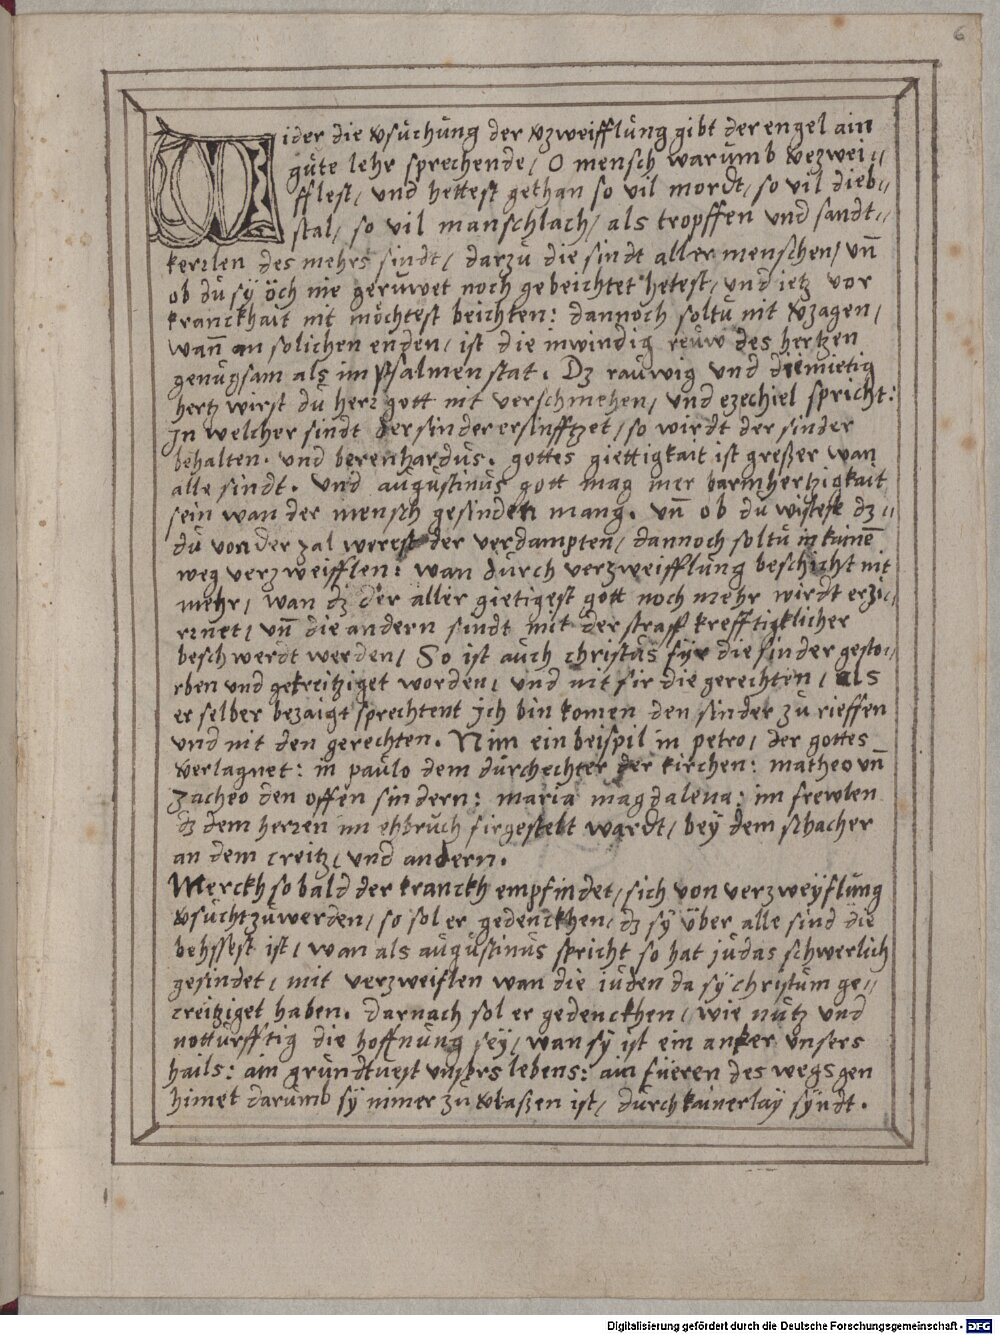 6
Wider die vsůchung der vzweifflung gibt der engel ain
gůte lehr sprechende / O mensch warumb vezwei=
fflest / und hettest gethan so vil mordt / so vil dieb=
stal / so vil manschlach / als tropffen und sandt=
kerrlen des mehrs sindt / darzů die sindt aller menschen / vñ
ob dů sÿ öch nie gerůwet noch gebeichtet hetest / und ietz vor
kranckhait nit möchtest beichten: dannoch soltu nit vzagen /
wañ an solichen enden / ist die inwindig reuw des hertzen
genůgsam als im psalmen stat. Dz rauwig und diemietig
hertz wirst dů herr gott nit verschmehen / und ezechiel spricht:
Jn welcher sindt der sinder ersinfftzet / so wirdt der sinder
behalten. und berenhardus. gottes giettigkait ist greßer wan
alle sindt. und augustinus gott mag mer barmhertzigkait
sein wan der mensch gesinden mang. vñ ob du wistest dz=
dů von der zal werest der verdampten / dannoch soltu in kainē
weg verzweifflen: wan durch verzweifflung beschicht nit
mehr / wan dz der aller gietigest gott noch mehr wirdt erzi=
rrnet / vñ die andern sindt mit der straff krefftigklicher
beschwerdt werden / So ist auch christus fyr die sinder gesto=
rben und gekreitziget worden / und nit fir die gerechten / als
er selber bezaigt sprechtent Jch bin komen den sinder zů rieffen
und nit den gerechten. Nim ein beispil in petro / der gottes
verlagnet: in paulo dem durchechter der kirchen: matheo vñ
zacheo den offen sindern: maria magdalena: im frewlen
dz dem herren im ehbruch firgestelt wardt / beÿ dem schacher
an dem creitz / und andern.
Merckh so bald der kranckh empfindet / sich von verzweÿflung
vsůcht zůwerden / so sol er gedenckhen / dz sÿ über alle sind die
behssest ist / wan als augustinus spricht so hat judas schwerlich
gesindet / mit verzweiflen wan die iuden da sÿ christum ge=
creitziget haben. darnach sol er gedenckhen / wie nutz und
notturfftig die hoffnung seÿ / wan sÿ ist ein anker unsers
hails: ain grundtvest unsers lebens: ain füeren des wegs gen
himel darumb sÿ nimer zů vlaßen ist / durch kainerlaÿ syndt.
Digitalisierung gefördert durch die Deutsche Forschungsgemeinschaft - DFG